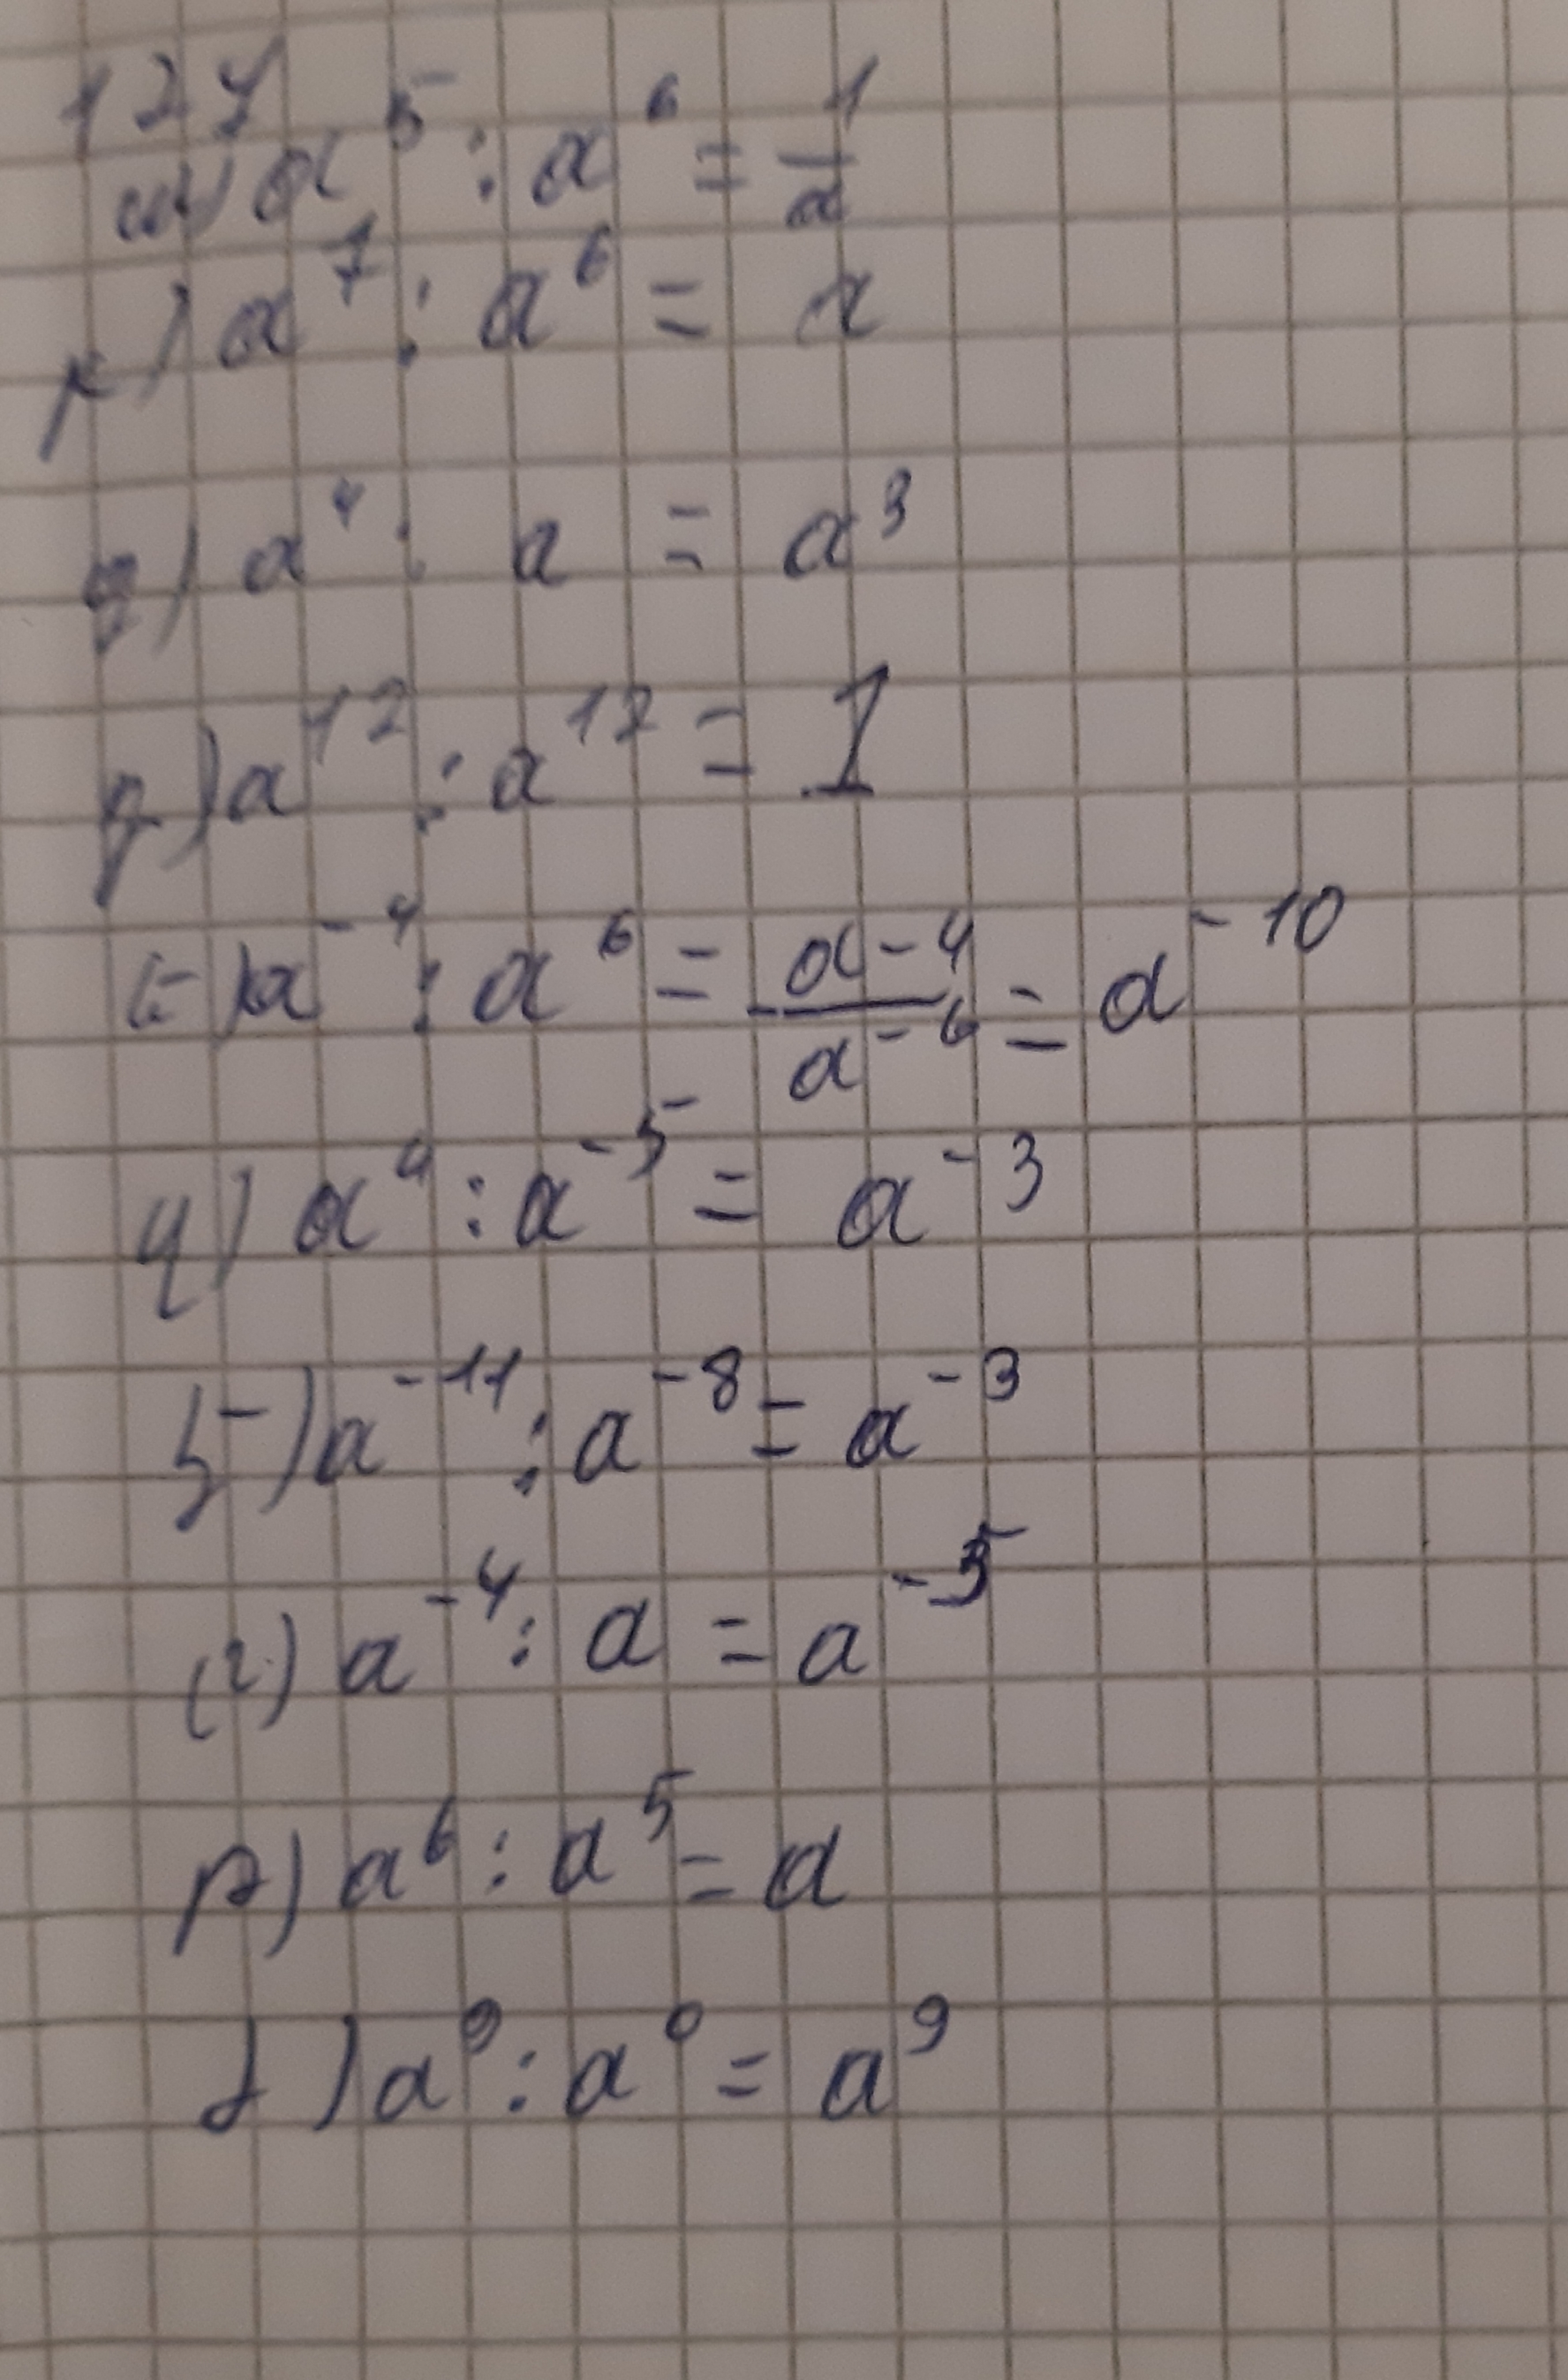 127
a⁵ : a⁶ = 1/a
a⁷ : a⁶ = a
a⁴ : a = a³
a¹² : a¹² = 1
a⁻⁴ : a⁶ = a⁻⁴/a⁻⁶ = a⁻¹⁰
կ) a⁴ : a⁻⁵ = a⁻³
հ) a⁻¹¹ : a⁻⁸ = a⁻³
a⁻⁴ : a = a⁻⁵
a⁶ : a⁵ = a
a⁹ : a⁰ = a⁹